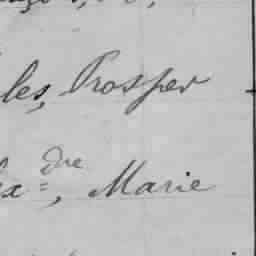 les, Prosper
ex=dre, Marie